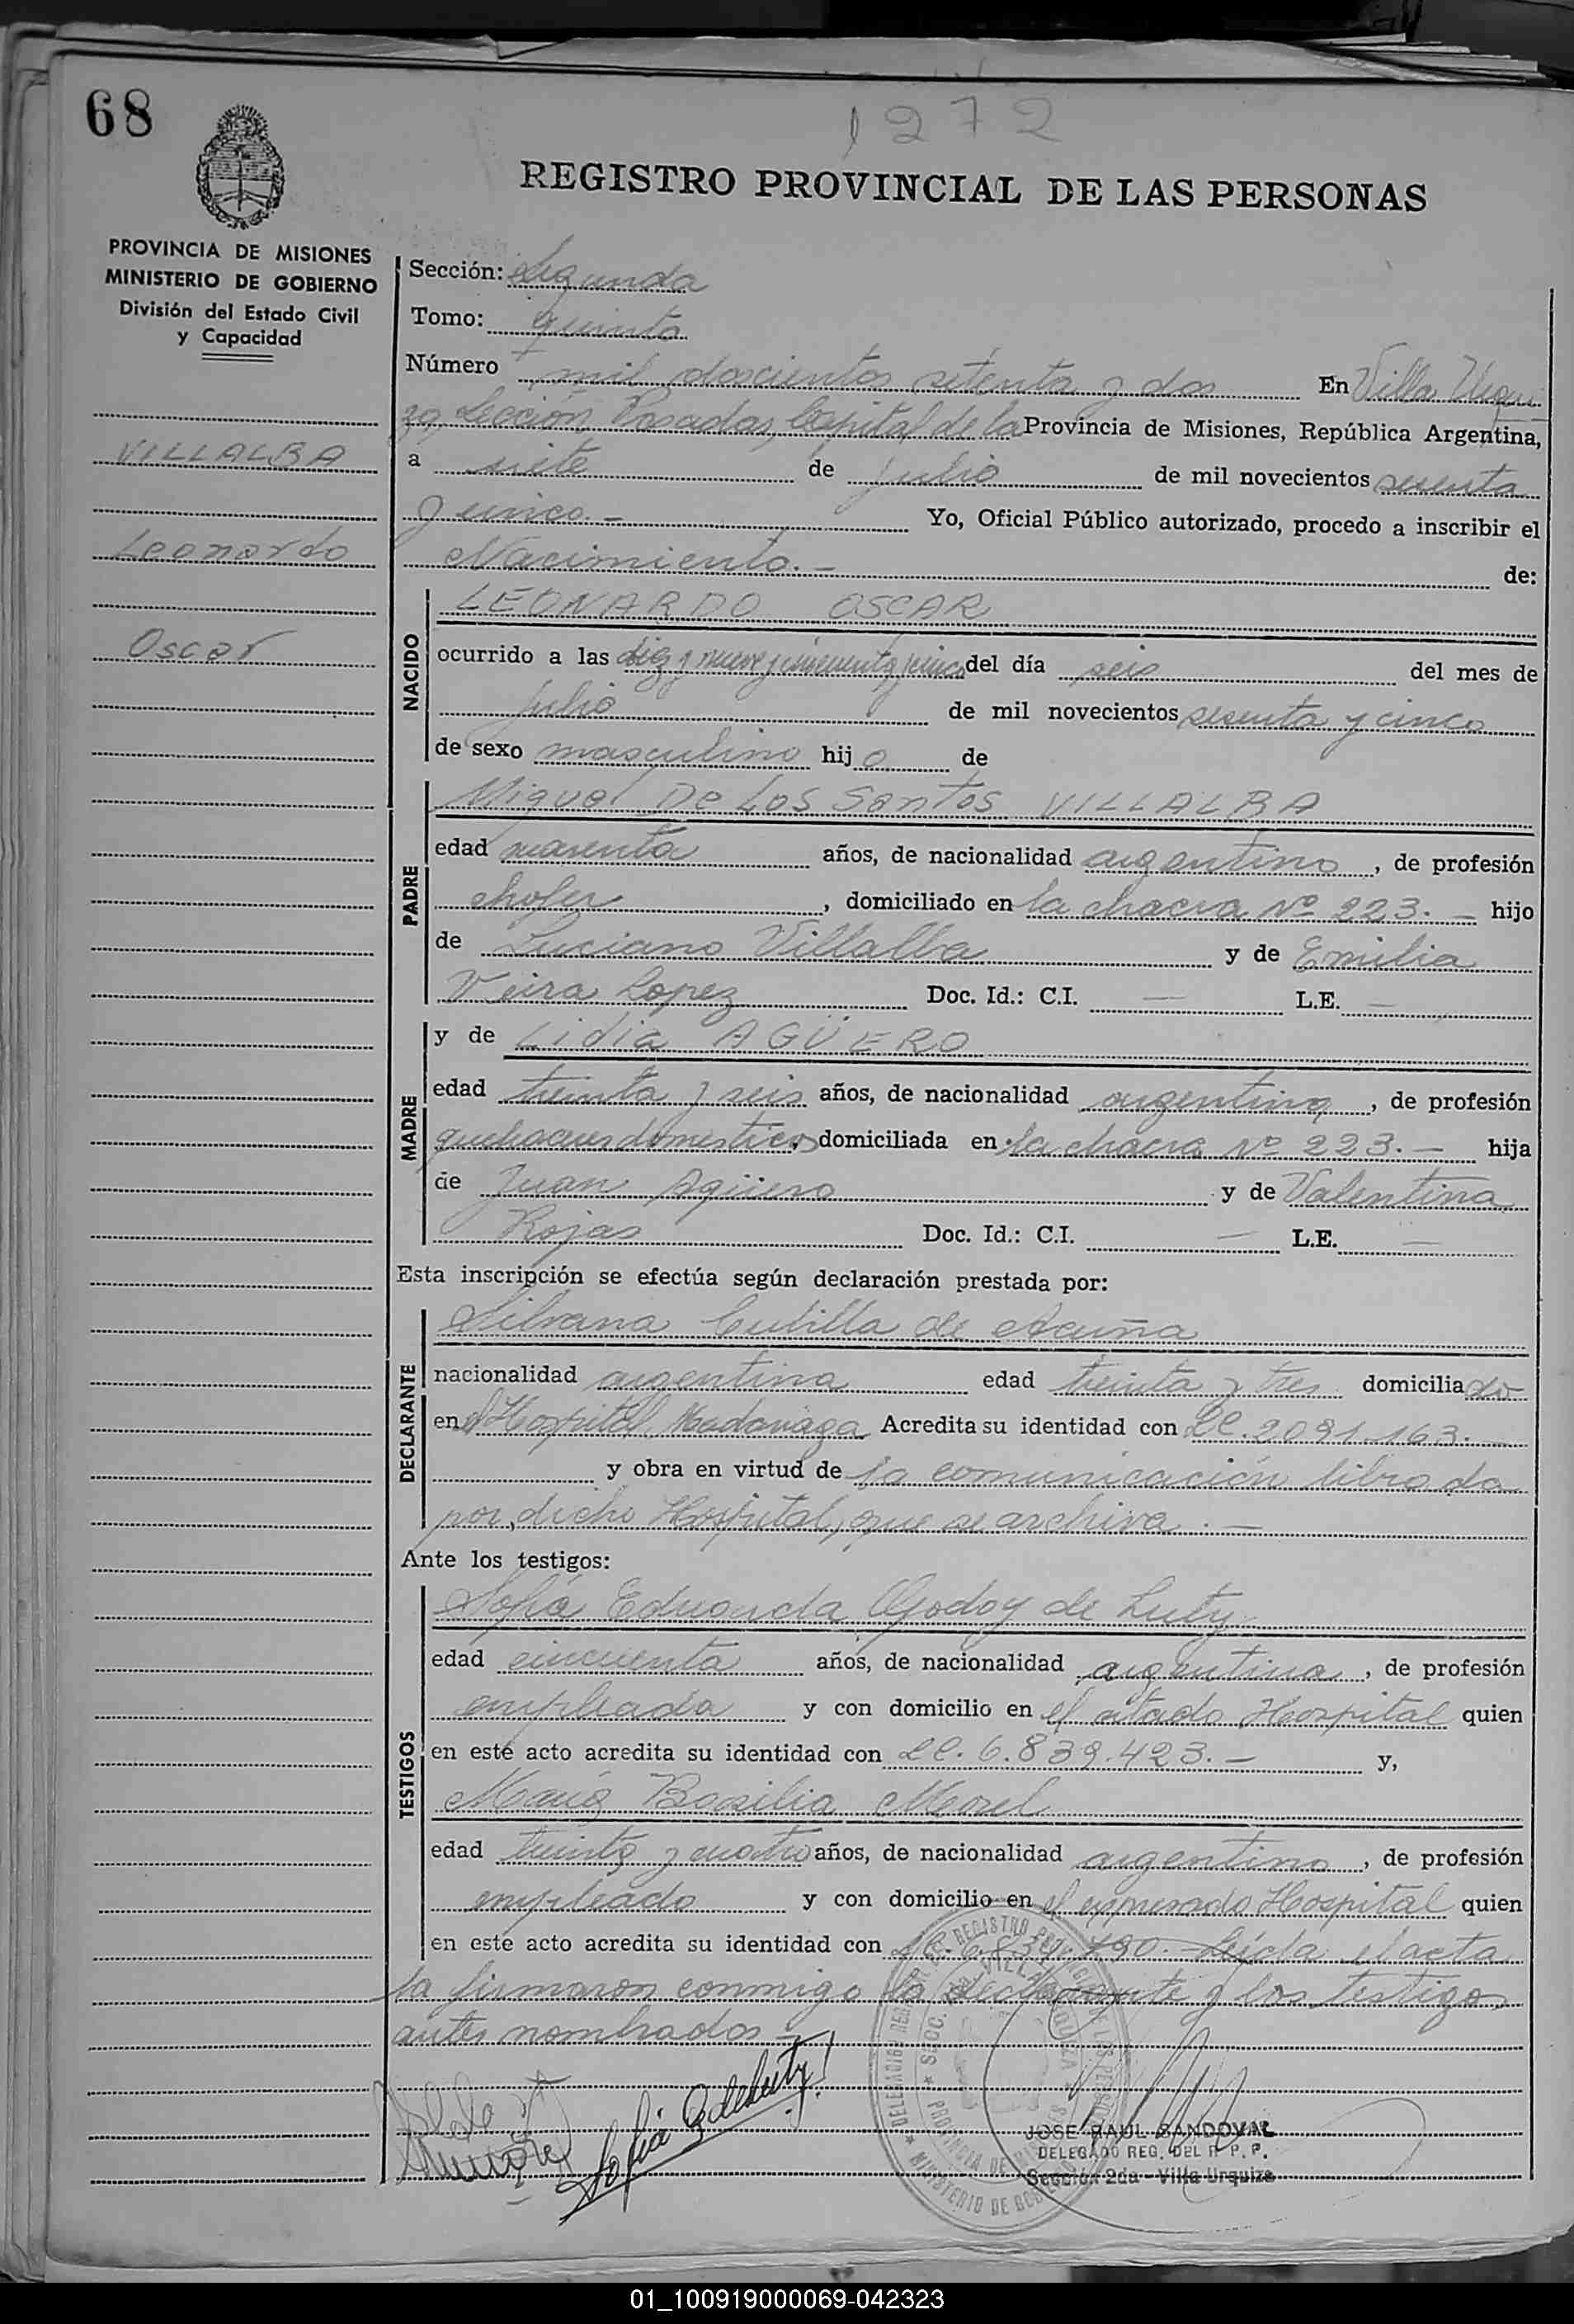 68
1272
REGISTRO PROVINCIAL DE LAS PERSONAS
PROVINCIA DE MISIONES
MINISTERIO DE GOBIERNO
División del Estado Civil
y Capacidad
VILLALBA
Leonardo
Oscar
Sección: Segunda
Tomo: quinto
Número mil doscientos setenta y dos En Villa Urqui
za, Sección Posadas, Capital de la Provincia de Misiones, República Argentina,
a siete de julio de mil novecientos sesenta
y cinco.- Yo, Oficial Público autorizado, procedo a inscribir el
Nacimiento.- de:
NACIDO
LEONARDO OSCAR
ocurrido a las diez y nueve y cincuenta y cinco del día seis del mes de
julio de mil novecientos sesenta y cinco
de sexo masculino hijo de
PADRE
Miguel De Los Santos VILLALBA
edad años, de nacionalidad argentino, de profesión
chofer, domiciliado en la chacra Nº 223. - hijo
de Luciano Villalba y de Emilia
Veira Lopez Doc. Id.: C.I. — L.E. —
MADRE
y de Lidia AGÜERO
edad treinta y seis años, de nacionalidad argentina, de profesión
quehaceres domesticos, domiciliada en la chacra Nº 223. - hija
de Juan Agüero y de Valentina
Rojas Doc. Id.: C.I. — L.E. —
Esta inscripción se efectúa según declaración prestada por:
DECLARANTE
Silvana de Acuña
nacionalidad argentina edad treinta y tres domiciliado
en el Hospital Madariaga Acredita su identidad con LC. 2.091.163. -
y obra en virtud de la comunicación librada
por dicho Hospital, que se archiva. -
Ante los testigos:
TESTIGOS
Sofía Eduarda Godoy de Luty
edad cincuenta años, de nacionalidad argentina, de profesión
empleada y con domicilio en el citado Hospital quien
en este acto acredita su identidad con LC. 6.839.423. - y,
María Basilia Morel
edad treinta y cuatro años, de nacionalidad argentina, de profesión
empleada y con domicilio en el expresado Hospital quien
en este acto acredita su identidad con Leída el acta
la firmaron conmigo la declarante y los testigos
antes nombrados -
JOSE RAUL SANDOVAL
DELEGADO REG. DEL R. P. P.
Sección 2da - Villa Urquiza
01_100919000069-042323